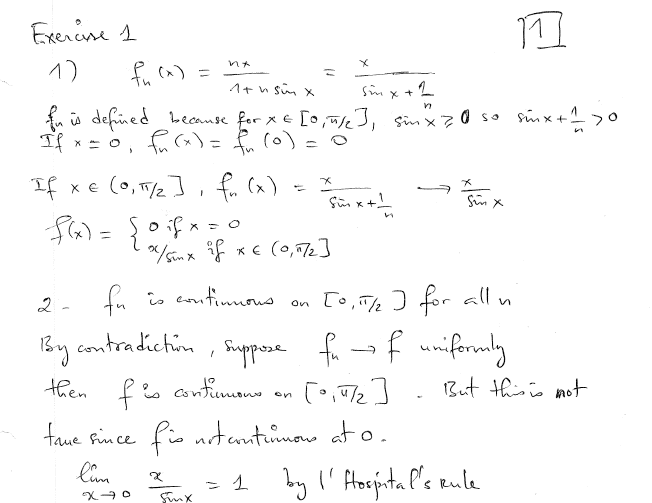 Exercise 1
1
1) fₙ(x) = nx / (1 + n sin x) = x / (sin x + 1/n)
fₙ is defined because for x ∈ [0, π/2], sin x ⩾ 0 so sin x + 1/n > 0
If x = 0, fₙ(x) = fₙ(0) = 0
If x ∈ (0, π/2], fₙ(x) = x / (sin x + 1/n) → x / sin x
f(x) = { 0 if x = 0
x/sin x if x ∈ (0, π/2]
2 - fₙ is continuous on [0, π/2] for all n
By contradiction, suppose fₙ → f uniformly
then f is continuous on [0, π/2]. But this is not
true since f is not continuous at 0.
lim x→0 x / sin x = 1 by l'Hospital's Rule